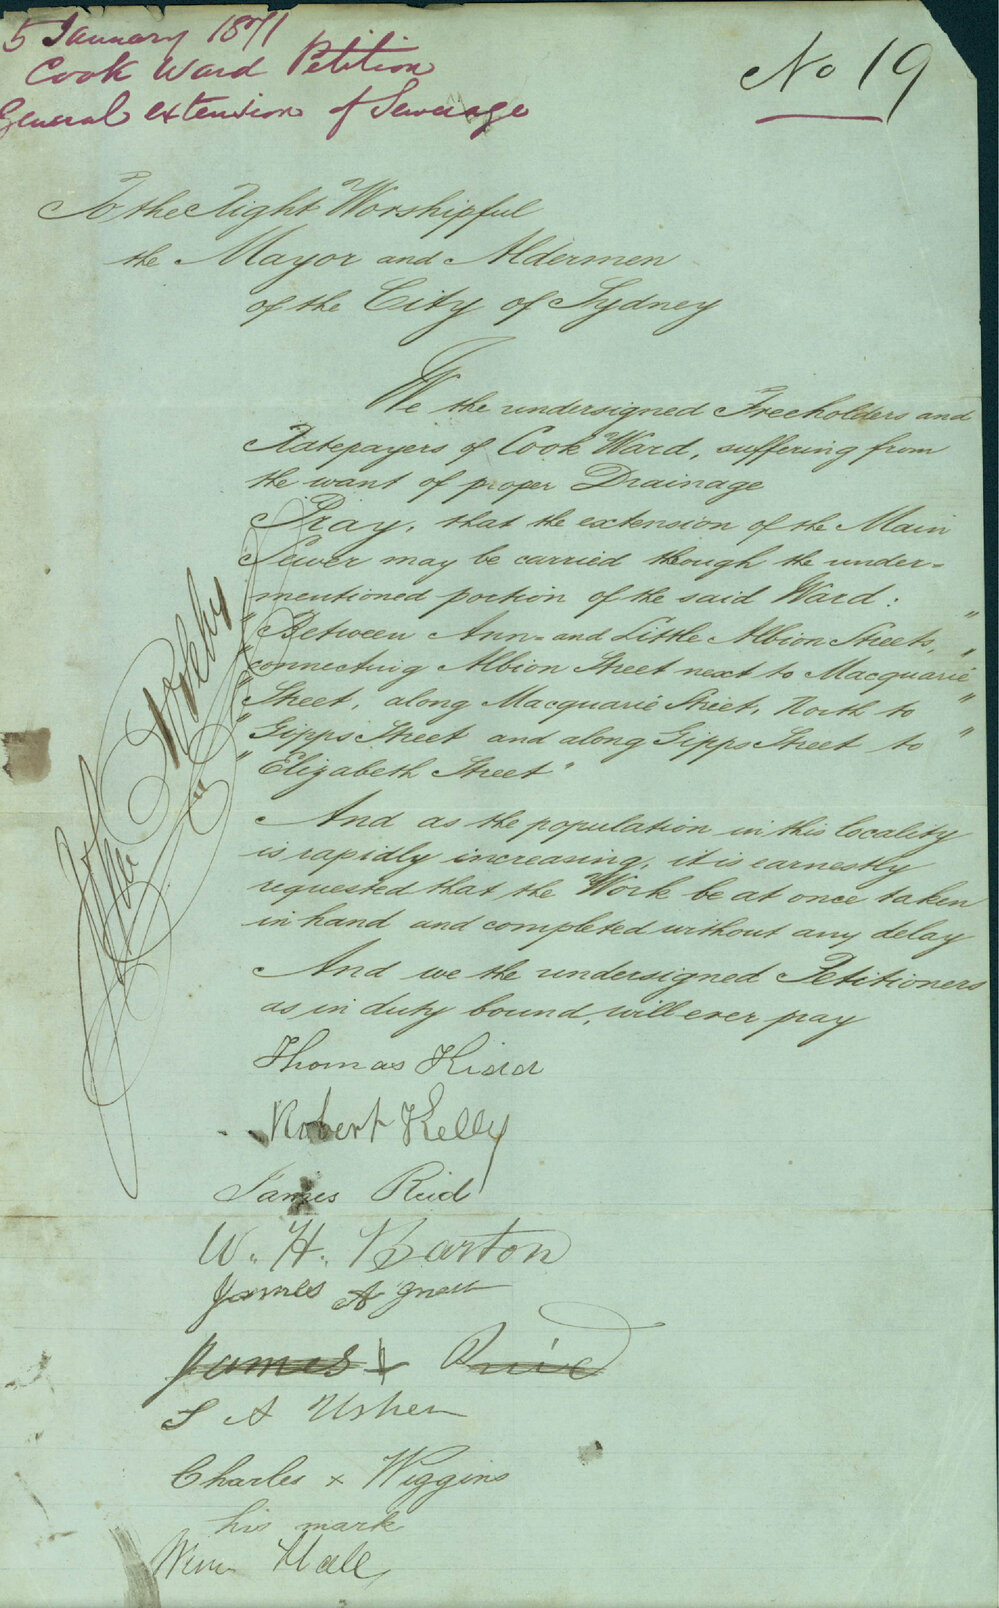 5 January 1871
Cook Ward Petition
General extension of Sewerage
No 19
To the Right Worshipful
the Mayor and Aldermen
of the City of Sydney
We the undersigned Freeholders and
Ratepayers of Cook Ward, suffering from
the want of proper Drainage
Pray, that the extension of the Main
Sewer may be carried though the under-
mentioned portion of the said Ward:
"Between Ann- and Little Albion Streets,"
"connecting Albion Street next to Macquarie"
"Street, along Macquarie Street, North to"
"Gipps Street and along Gipps Street to"
"Elizabeth Street"
And as the population in this locality
is rapidly increasing, it is earnestly
requested that the Work be at once taken
in hand and completed without any delay
And we the undersigned Petitioners
as in duty bound, will ever pay
Thomas
Robert Kelly
James Reid
W. H. Barton
James A
James x
S A Usher
Charles x Wiggins
his mark
Wm Hall
John